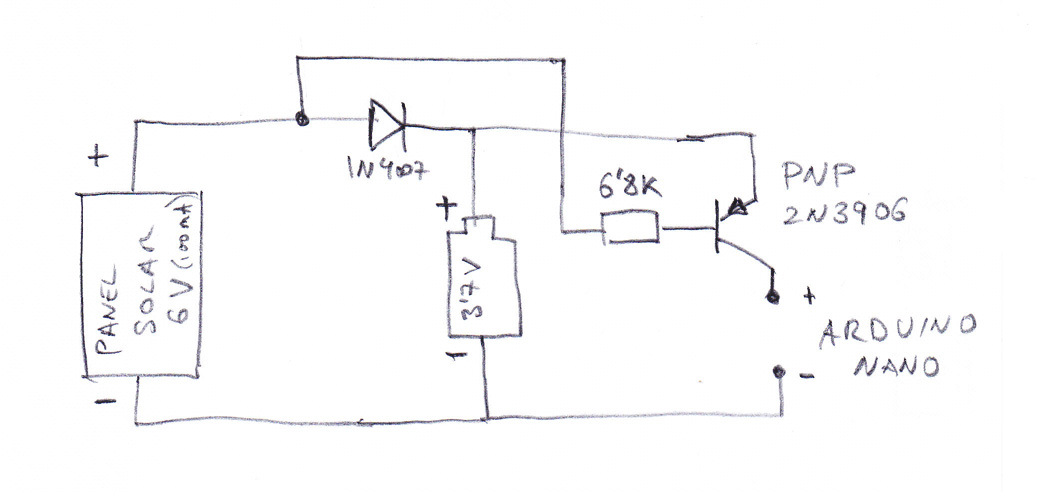 +
PANEL
SOLAR
6V (100mA)
-
1N4007
+
3'7V
-
6'8K
PNP
2N3906
+
ARDUINO
NANO
-